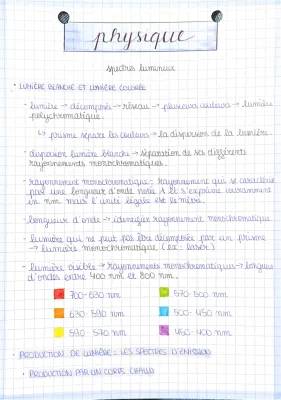 physique
spectres lumineux
• LUMIÈRE BLANCHE ET LUMIÈRE COLORÉE
- lumière → décomposée → réseau → plusieurs couleurs → lumière
polychromatique.
↳ prisme sépare les couleurs → la dispersion de la lumière.
- dispersion lumière blanche → séparation de ses différents
rayonnements monochromatiques.
- rayonnement monochromatique : rayonnement qui se caractérise
par une longueur d'onde notée λ et s'exprime couramment
en nm mais l'unité légale est le mètre.
- longueur d'onde → identifier rayonnement monochromatique
- lumière qui ne peut pas être décomposée par un prisme
→ lumière monochromatique (ex : laser)
- lumière visible → rayonnements monochromatiques → longueurs
d'ondes entre 400 nm et 800 nm.
700-630 nm 570-500 nm
630-590 nm 500-450 nm
590-570 nm 450-400 nm
• PRODUCTION DE LUMIÈRE : LES SPECTRES D'ÉMISSION
• PRODUCTION PAR UN CORPS CHAUD